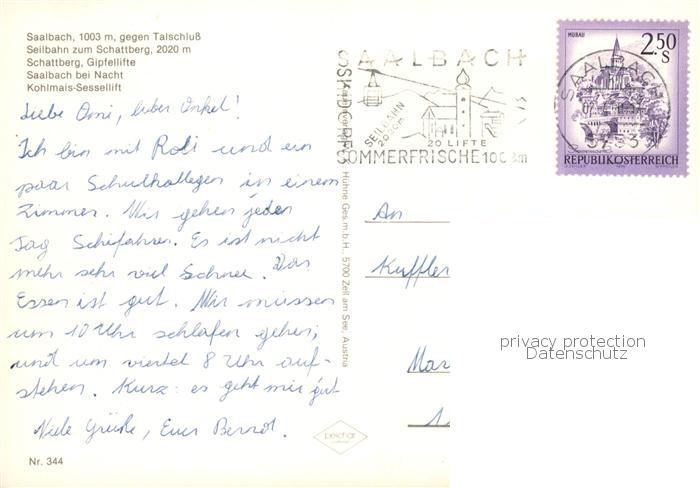 Saalbach, 1003 m, gegen Talschluß
Seilbahn zum Schattberg, 2020 m
Schattberg, Gipfellifte
Saalbach bei Nacht
Kohlmais-Sessellift
Liebe Omi, lieber Onkel!
Ich bin mit Roli und ein
paar Schulkollegen in einem
Zimmer. Wir gehen jeden
Tag Schifahren. Es ist nicht
mehr sehr viel Schnee. Das
Essen ist gut. Wir müssen
um 10 Uhr schlafen gehen,
und um viertel 8 Uhr auf-
stehen. Kurz: es geht mir gut
Viele Grüße, Euer Bernd.
Nr. 344
Hühne Ges.m.b.H., 5700 Zell am See, Austria
SAALBACH
SKIZIRKUS
SEILBAHN
2020m
20 LIFTE
SOMMERFRISCHE 1003m
SAALBACH
MURAU
2.50
S
REPUBLIK ÖSTERREICH
An
Kuffler
Mar
privacy protection
Datenschutz